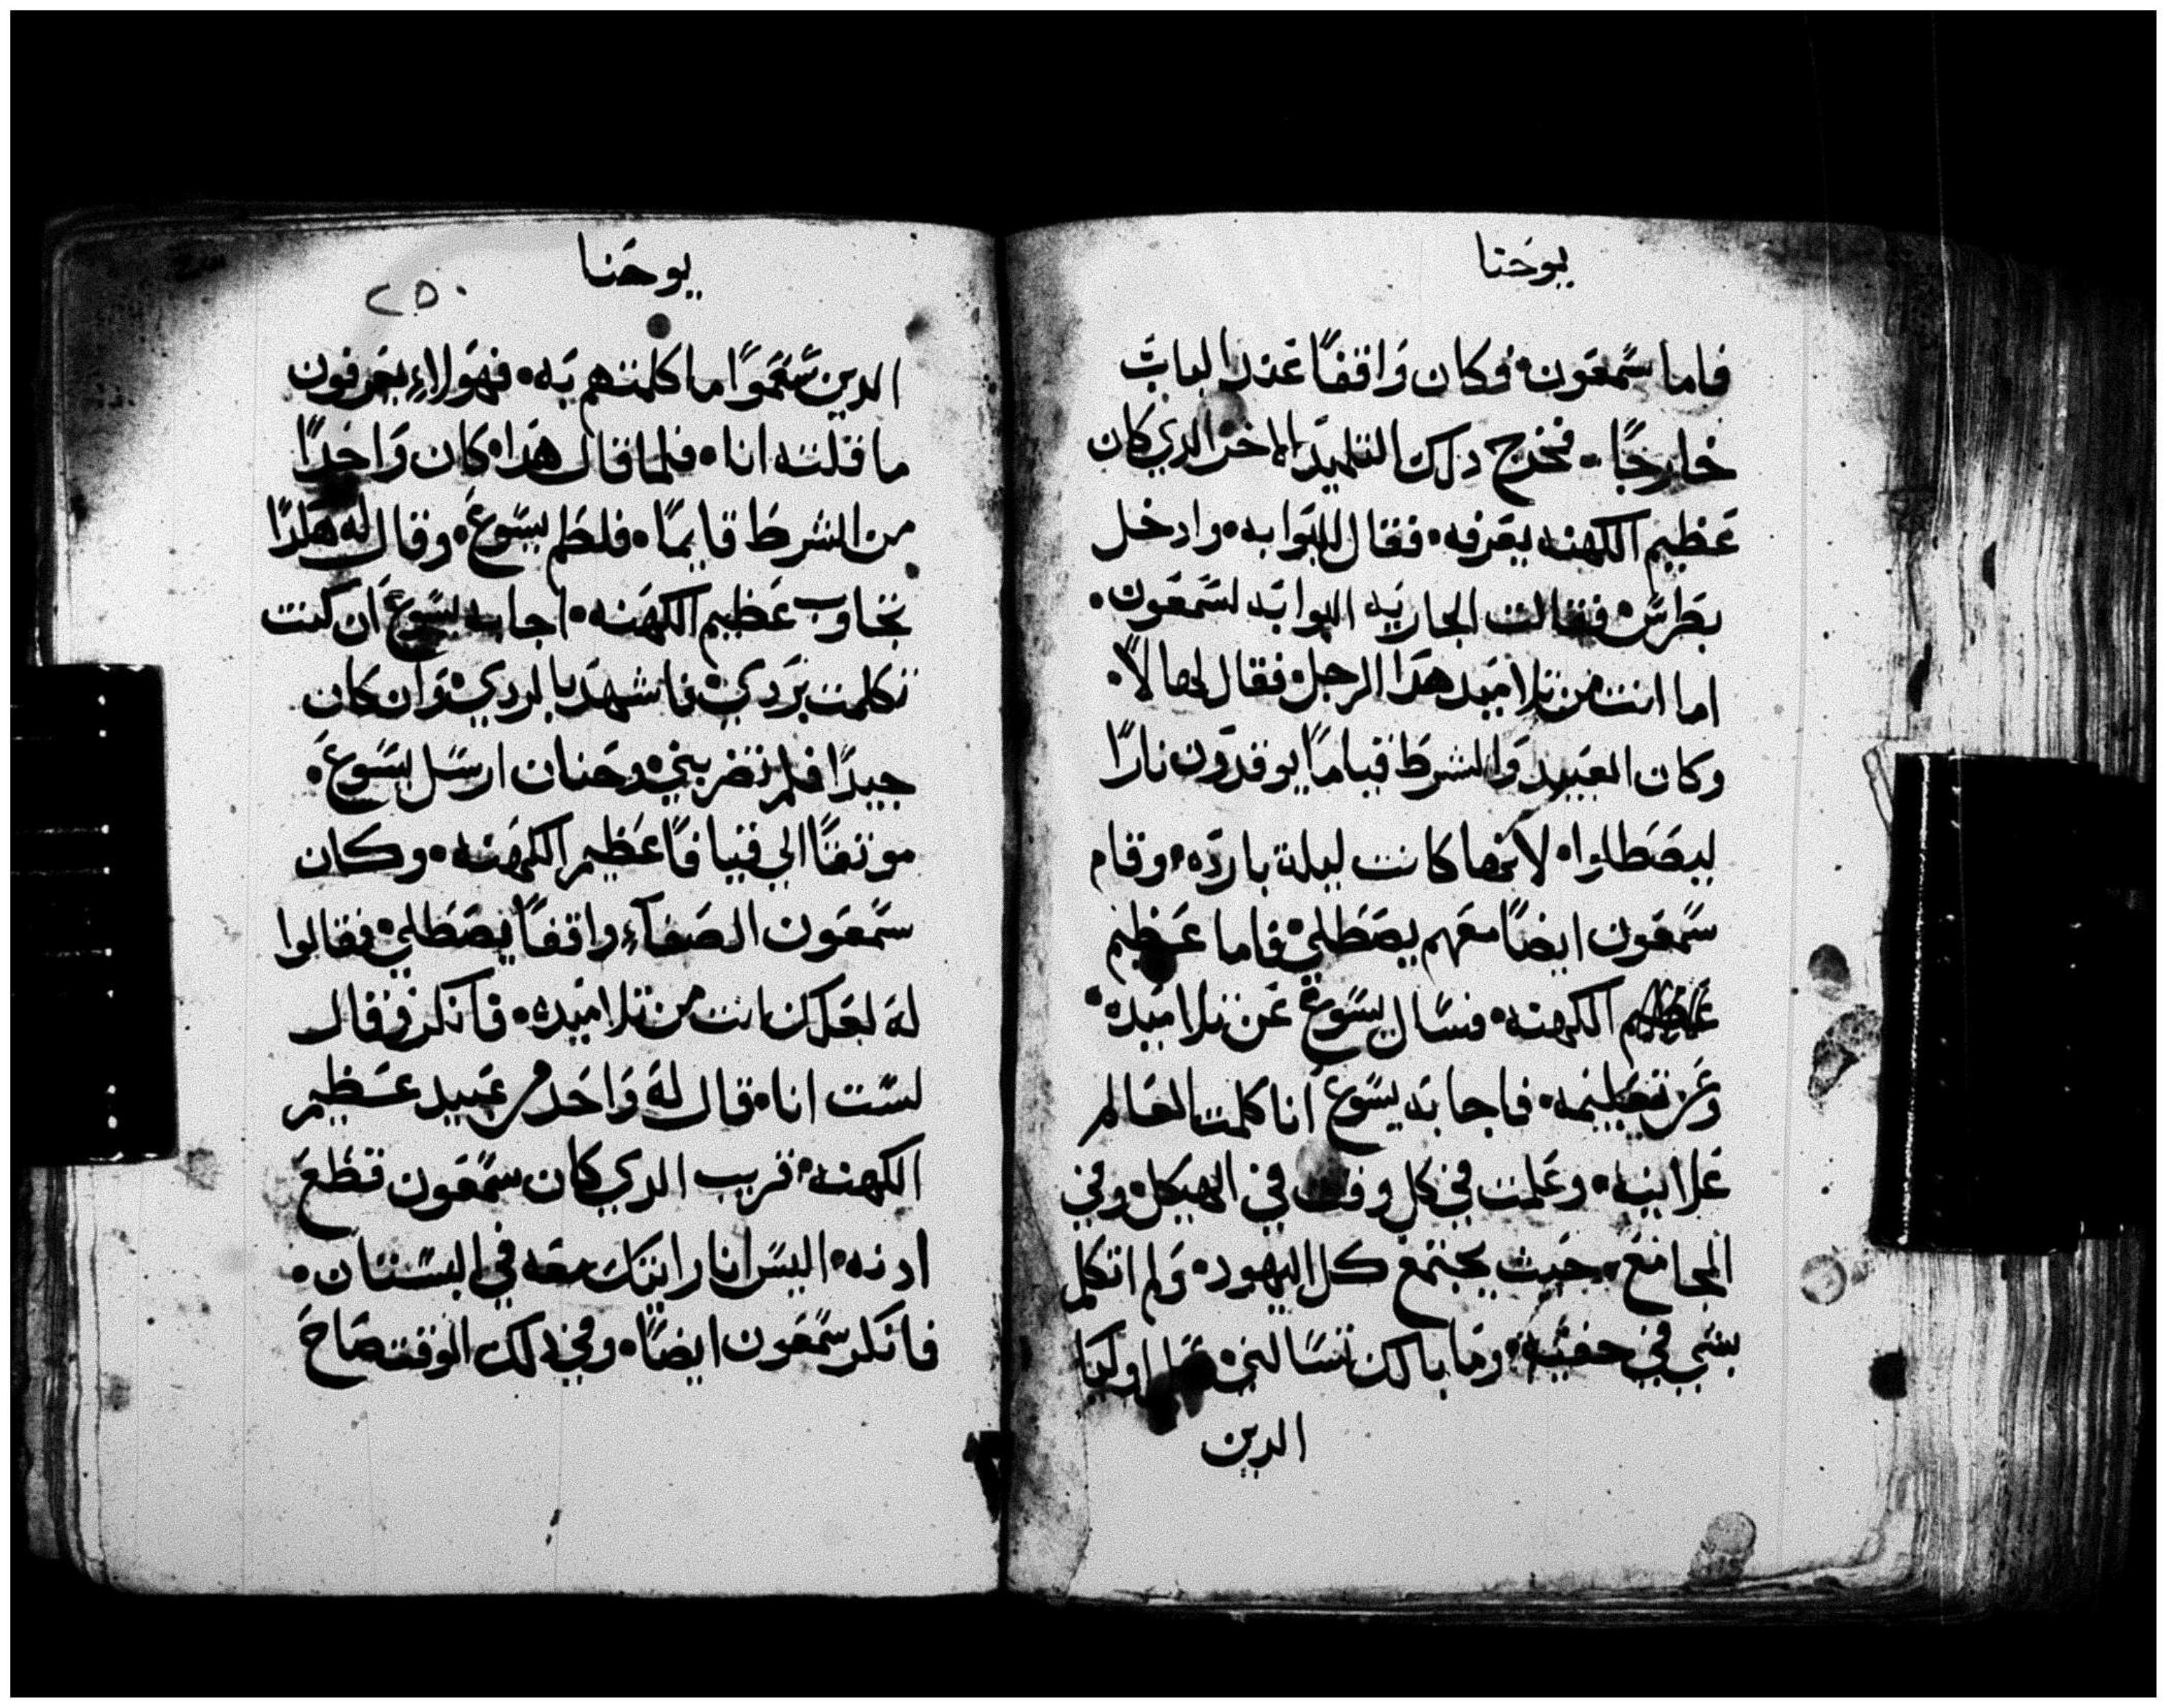 يوحنا
فاما سمعون فكان واقفًا عند الباب
خارجًا فخرج دلك التلميد الاخر الدي كان
عظيم الكهنه يعرفه فقال للبوابه وادخل
بطرس فقالت الجاريه البوابه لسمعون
اما انت من تلاميد هدا الرجل فقال لها لا
وكان العبيد والشرط قيامًا يوقدون نارًا
ليصطلوا لانها كانت ليلة بارده وقام
سمعون ايضًا معهم يصطلي فاما عظيم
الكهنه فسال يسوع عن تلاميده
وعن تعليمه فاجابه يسوع انا كلمت العالم
علانيه وعلمت في كل وقت في الهيكل وفي
المجامع حيث يجتمع كل اليهود ولم اتكلم
بشي في خفيه وما بالك تسالني اوليك
الدين
يوحنا
٢٥٠
الدين سمعوا ما كلمتهم به فهولاء يعرفون
ما قلته انا فلما قال هدا كان واحدًا
من الشرط قايمًا فلطم يسوع وقال له هكدا
تجاوب عظيم الكهنه اجابه يسوع ان كنت
تكلمت بردي فاشهد بالردي وان كان
جيدًا فلم تضربني وحنان ارسل يسوع
موتقًا الي قيافا عظيم الكهنه وكان
سمعون الصفاء واقفًا يصطلي فقالوا
له لعلك انت من تلاميده فانكر وقال
لست انا قال له واحد من عبيد عظيم
الكهنه قريب الدي كان سمعون قطع
ادنه اليس انا رايتك معه في البستان
فانكر سمعون ايضًا وفي دلك الوقت صاح